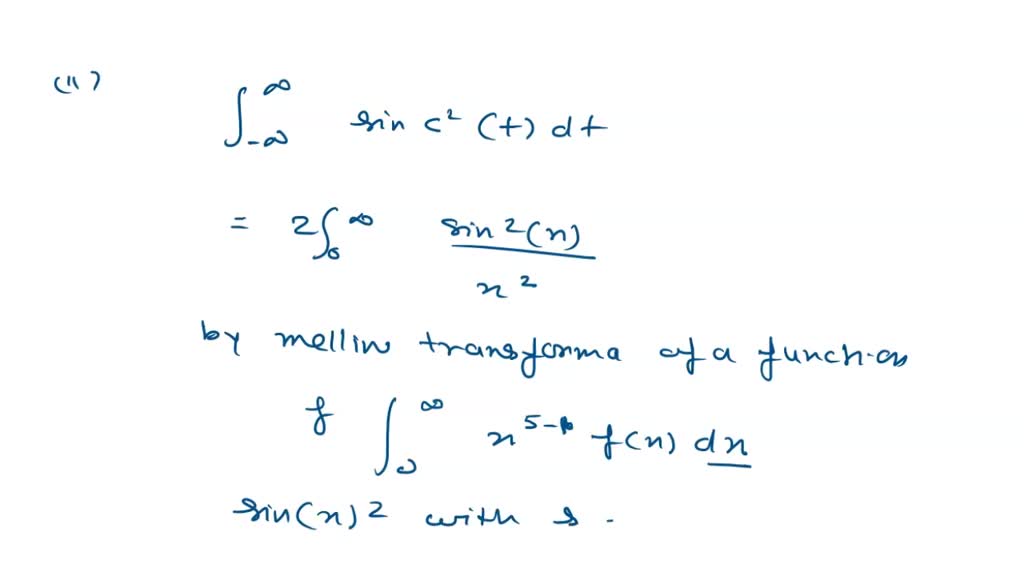 (ii)
∫_{-∞}^{∞} sin c² (t) dt
= 2∫_0^∞ sin²(x) / x²
by mellin transforma of a function
f ∫_0^∞ x^{s-1} f(x) dx
sin(x)² with s -